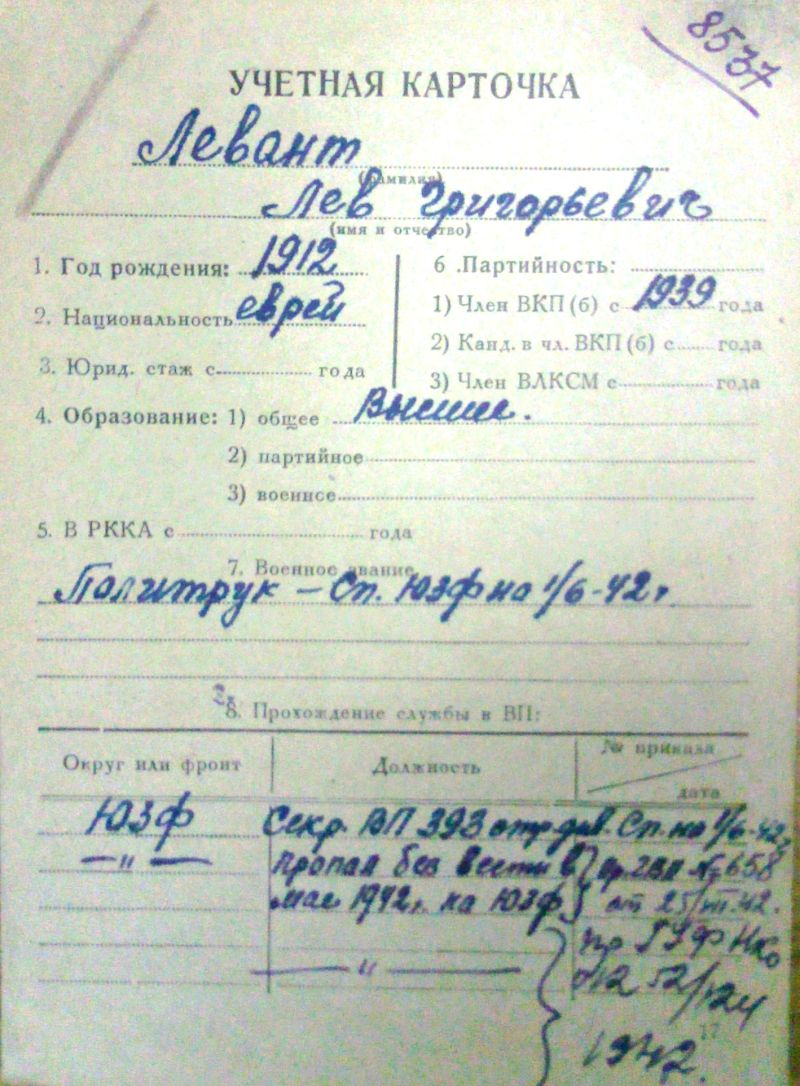 8537
УЧЕТНАЯ КАРТОЧКА
Левант
(фамилия)
Лев Григорьевич
(имя и отчество)
1. Год рождения: 1912
6. Партийность:
1) Член ВКП(б) с 1939 года
2. Национальность еврей
2) Канд. в чл. ВКП(б) с года
3. Юрид. стаж с года
3) Член ВЛКСМ с года
4. Образование: 1) общее Высшее.
2) партийное
3) военное
5. В РККА с года
7. Военное звание
Политрук – Сп. ЮЗФ на 1/6-42 г.
8. Прохождение службы в ВП:
Округ или фронт
Должность
№ приказа
дата
ЮЗФ Секр. ВП 393 стр. див. Сп. на 1/6-42 г
— " — пропал без вести в пр. ГВП № 658
мае 1942 г. на ЮЗФ от 25/III.42.
— " — пр ГУФ НКО
1942.